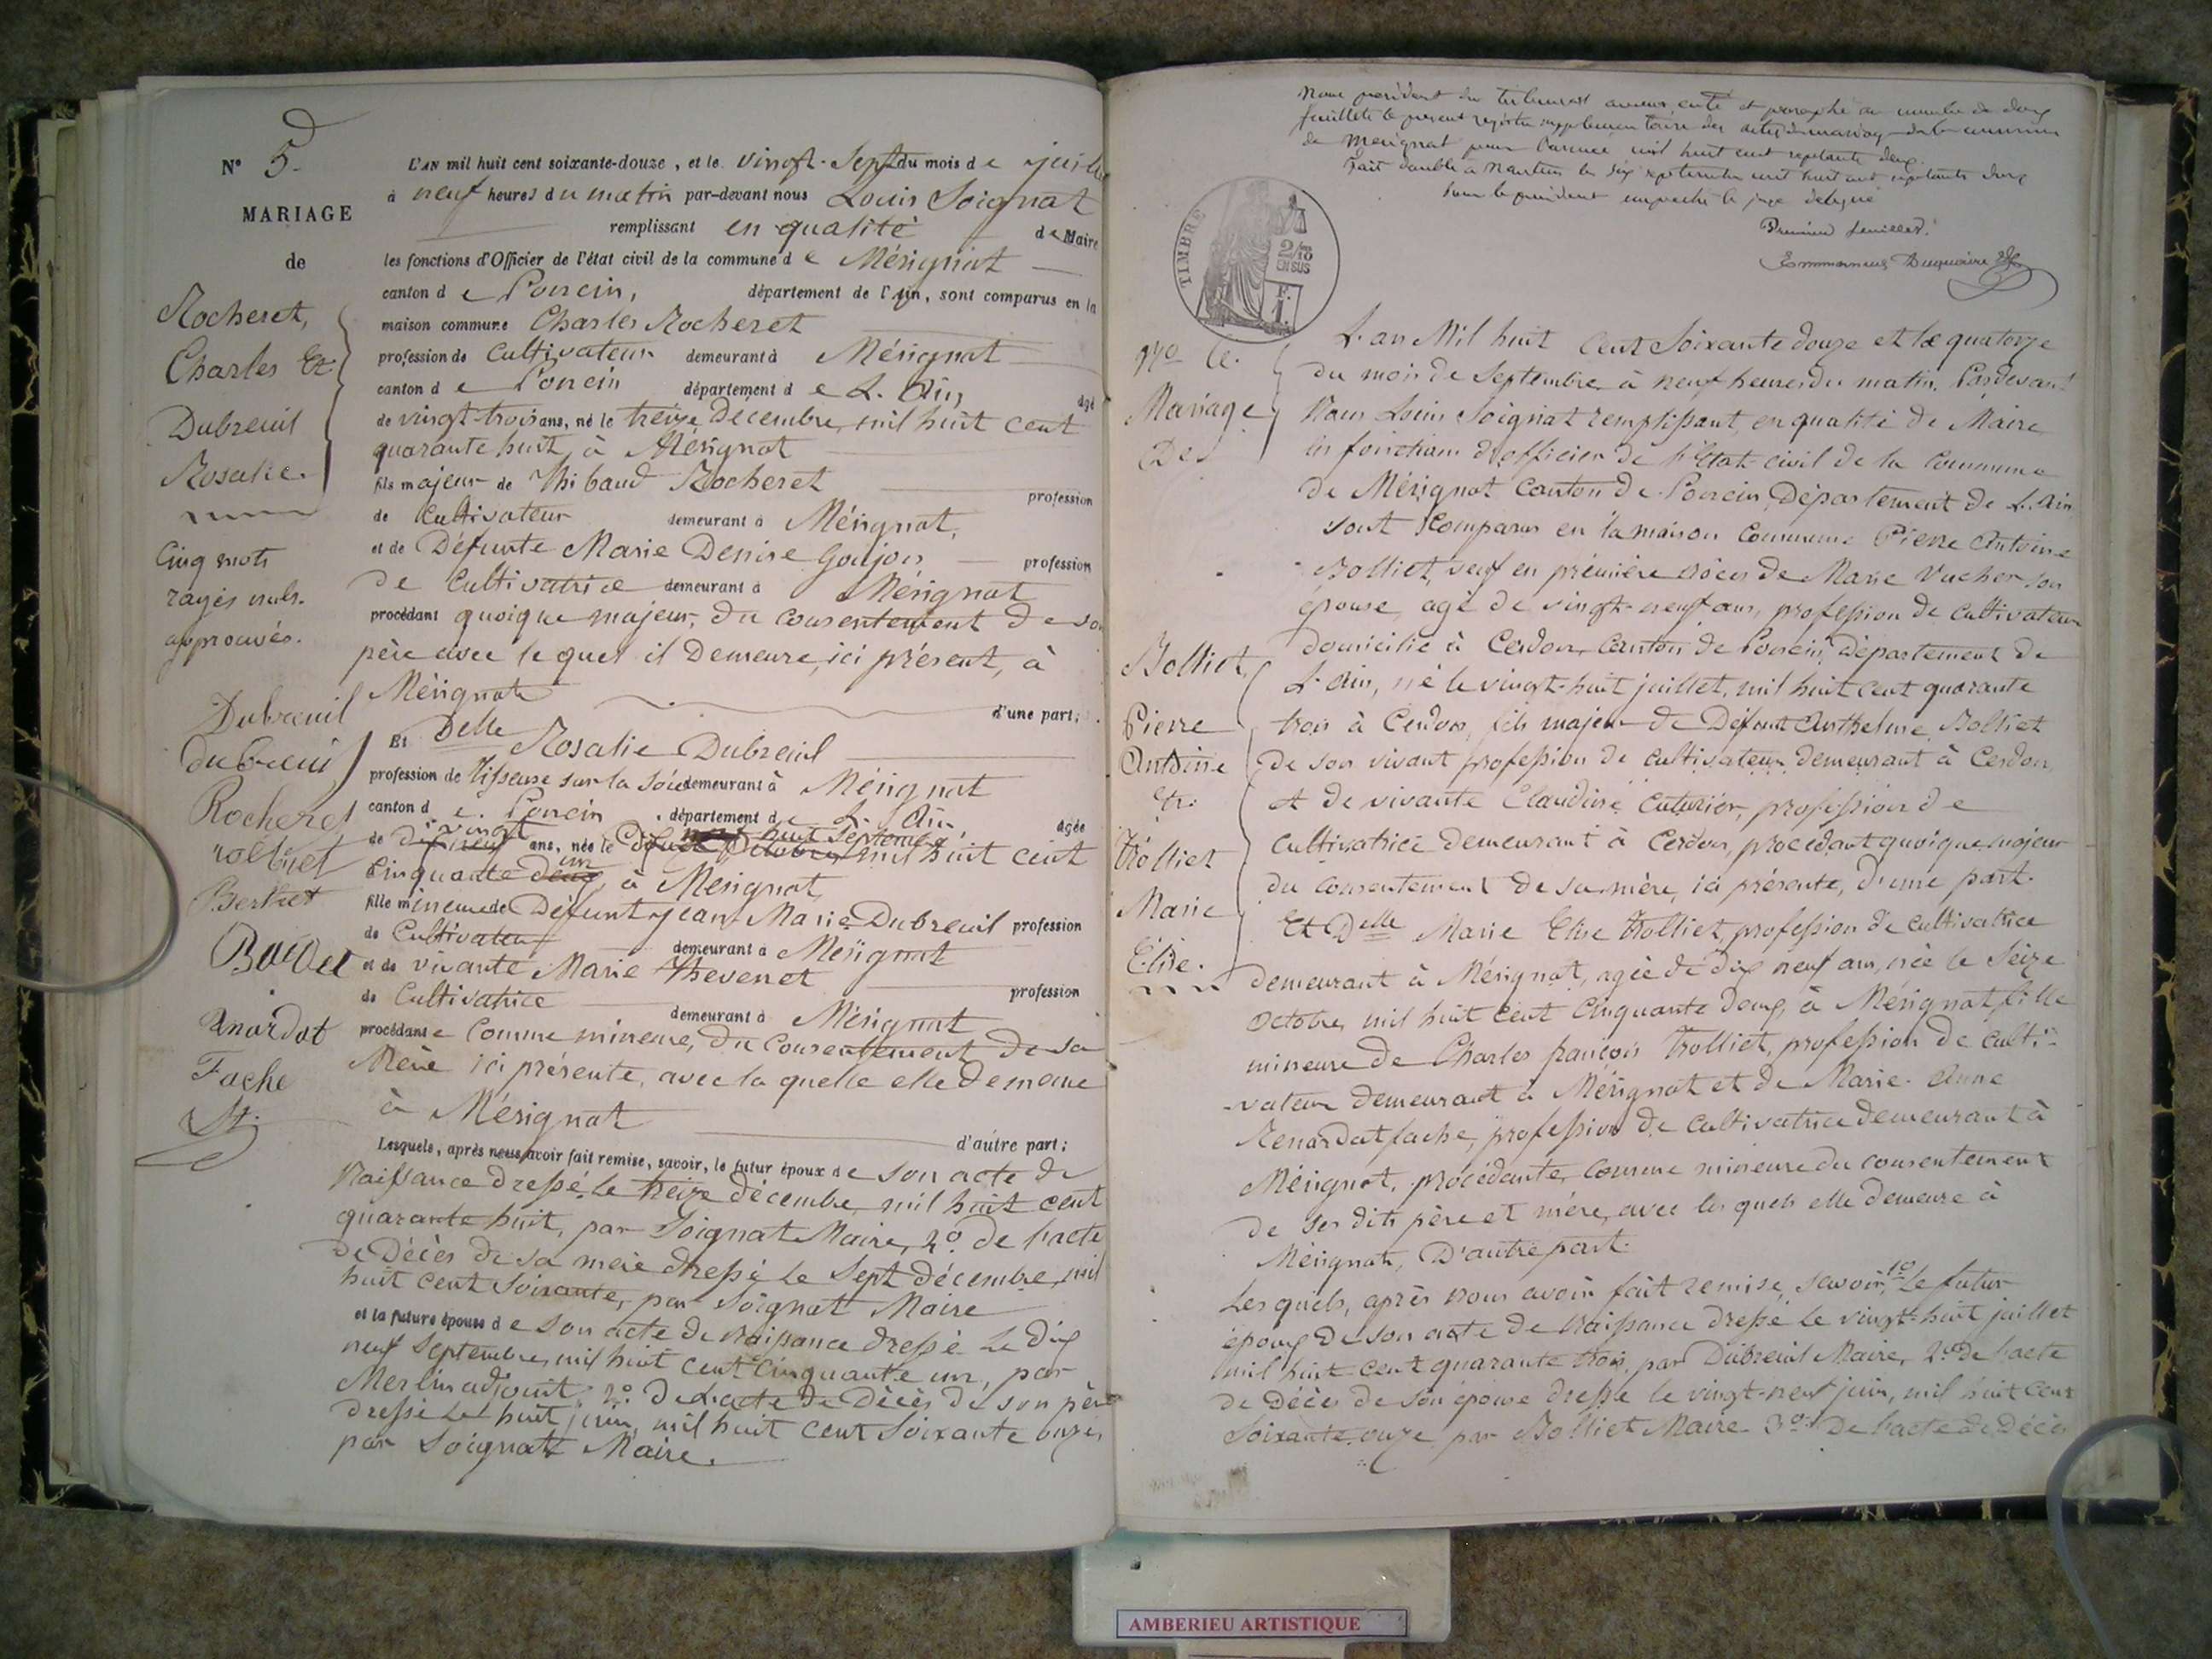 N° 5.
MARIAGE
de
Rocheret,
Charles Et
Dubreuil
Rosalie.
Cinq mots
rayés nuls.
approuvés.
Dubreuil
dubreuil
Rocheret
rolliet
Berthet
Fache
L'AN mil huit cent soixante-douze, et le vingt-Sept du mois de juillet
à neuf heures du matin par-devant nous Louis Soignat
remplissant en qualité de Maire
les fonctions d'Officier de l'état civil de la commune de Mérignat
canton de Poncin, département de l'Ain, sont comparus en la
maison commune Charles Rocheret
profession de Cultivateur demeurant à Mérignat
canton de Poncin département de L'Ain âgé
de vingt-trois ans, né le treize Décembre mil huit cent
quarante huit, à Mérignat
fils majeur de Thibaud Rocheret profession
de Cultivateur demeurant à Mérignat,
et de Défunte Marie Denise Goujon profession
de Cultivatrice demeurant à Mérignat
procédant quoique majeur, du consentement de son
père avec lequel il Demeure, ici présent, à
Mérignat d'une part;
Et Delle Rosalie Dubreuil
profession de Tisseuse sur la Soie demeurant à Mérignat
canton de Poncin département de L'Ain âgée
de dix neuf vingt ans, née le Dix huit Septembre mil huit cent
Cinquante deux un, à Mérignat
fille mineure de Défunt Jean Marie Dubreuil profession
de Cultivateur demeurant à Mérignat
et de vivante Marie Thevenet profession
de Cultivatrice demeurant à Mérignat
procédante comme mineure, du Consentement de sa
Mère ici présente, avec laquelle elle demeure
à Mérignat
d'autre part;
Lesquels, après nous avoir fait remise, savoir, le futur époux de son acte de
Naissance dressé le treize décembre mil huit cent
quarante huit, par Soignat Maire, 2° de l'acte
de Décès de sa mère dressé le Sept décembre mil
huit cent Soixante, par Soignat Maire
et la future épouse de son acte de Naissance dressé le dix
neuf Septembre mil huit cent Cinquante un, par
Merlin adjoint 2° de L'acte de Décès de son père
dressé le huit juin mil huit cent Soixante onze,
par Soignat Maire.
Nous président du tribunal avons coté et paraphé au nombre de deux
feuillets le présent registre supplémentaire des actes de mariage de la commune
de Merignat pour l'année mil huit cent septante deux
Fait double à Nantua le dix septembre mil huit cent septante deux
Pour le président empeché le juge délégué
Premier feuillet.
TIMBRE
2/10
EN SUS
F.
1.
N° 6.
Mariage
De
Bolliet,
Pierre
Antoine
Et.
Trolliet
Marie
Elise.
L'an Mil huit Cent Soixante douze et le quatorze
du mois de Septembre à neuf heures du matin. Pardevant
Nous Louis Soignat remplissant, en qualité de Maire
les fonctions d'officier de l'Etat-civil de la Commune
de Mérignat Canton de Poncin, Département de L'Ain
sont Comparus en la maison Commune Pierre Antoine
Bolliet, veuf en première nôces de Marie Vucher son
épouse, agé de vingt-neuf ans, profession de Cultivateur
domicilié à Cerdon, Canton de Poncin, département de
L'Ain, né le vingt-huit juillet, mil huit cent quarante
trois à Cerdon, fils majeur de Défunt Anthelme Bolliet
de son vivant profession de cultivateur demeurant à Cerdon,
et de vivante Claudine Cuturier, profession de
Cultivatrice demeurant à Cerdon, procédant quoique majeur
du consentement de sa mère, ici présente, d'une part.
Et Delle Marie Elise Trolliet, profession de cultivatrice
demeurant à Mérignat, agée de dix neuf ans, née le Seize
Octobre, mil huit cent Cinquante deux, à Mérignat fille
mineure de Charles françois Trolliet, profession de culti-
-vateur demeurant à Mérignat et de Marie-Anne
Renardat fache, profession de Cultivatrice demeurant à
Mérignat, procédante, comme mineure du consentement
de ses dits père et mère, avec lesquels elle demeure à
Mérignat, D'autre part.
Lesquels, après nous avoir fait remise, savoir, 1° Le futur
époux de son acte de Naissance dressé le vingt-huit juillet
mil huit cent quarante trois, par Dubreuil Maire, 2° de l'acte
de Décès de son épouse dressé le vingt-neuf juin, mil huit cent
Soixante onze par Bolliet Maire. 3° De l'acte de Décès
AMBERIEU ARTISTIQUE